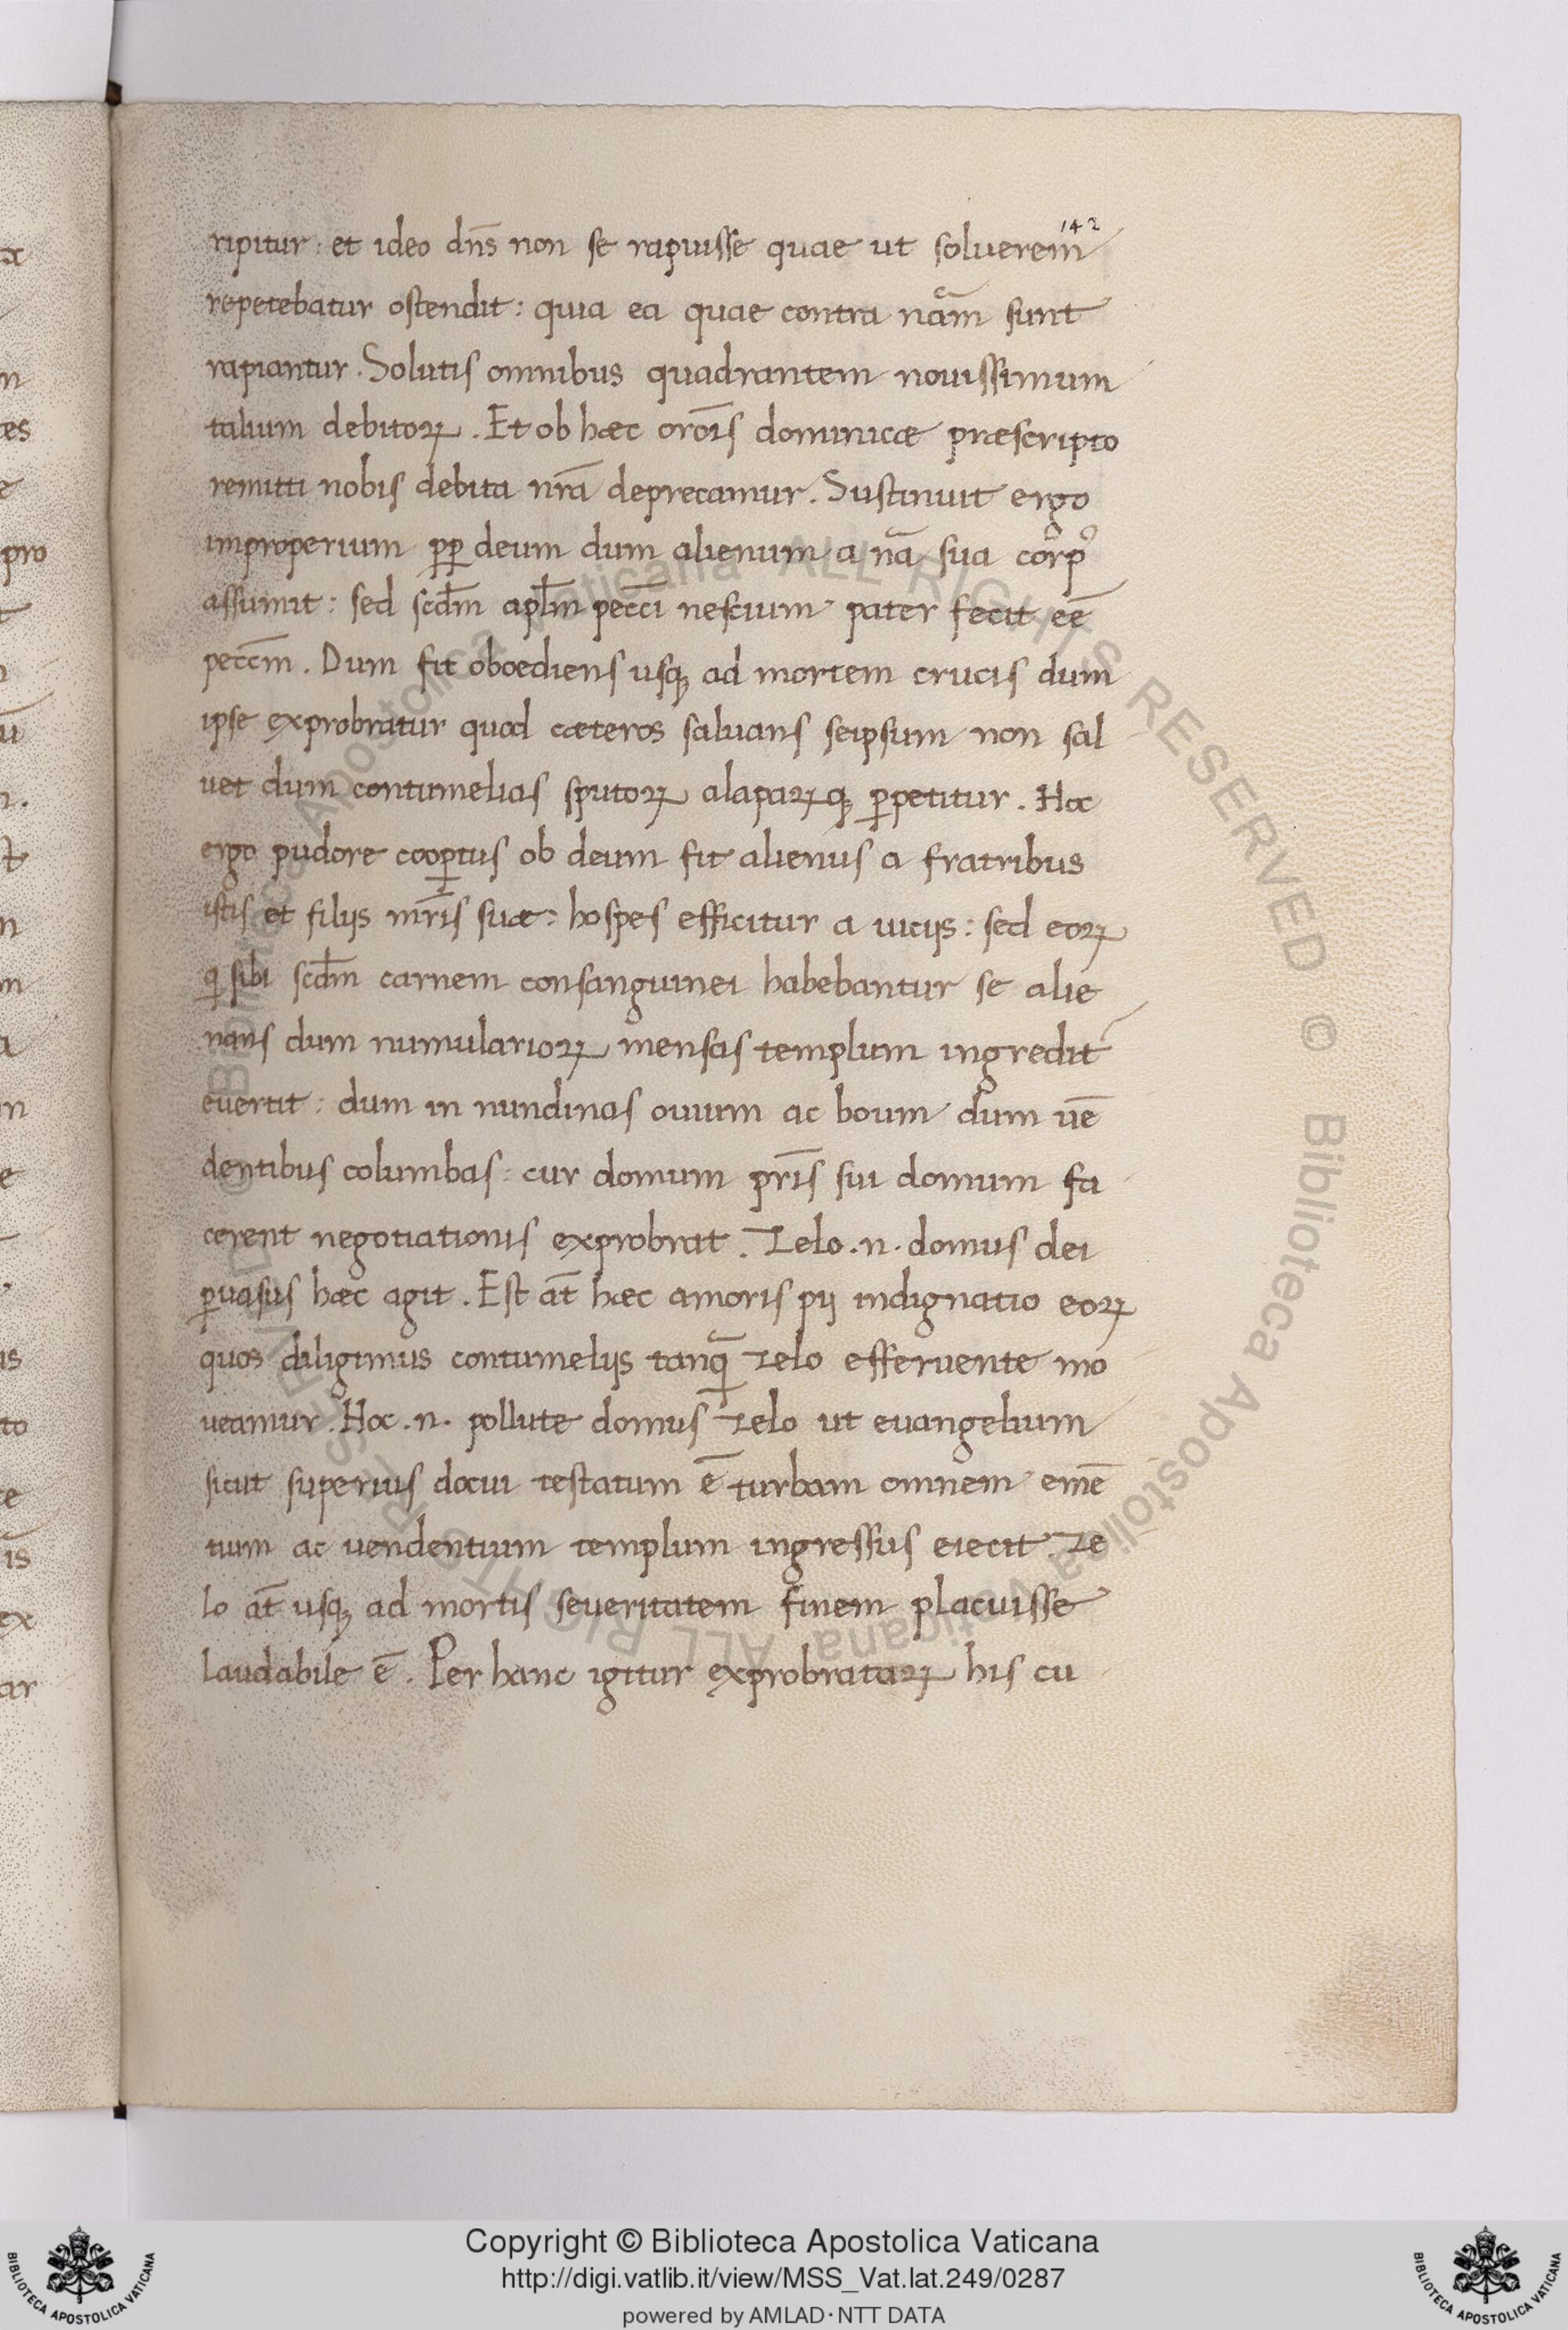 142
ripitur: et ideo dn̅s non se rapuisse quae ut solueren̅
repetebatur ostendit: quia ea quae contra na̅m sunt
rapiantur. Solutis omnibus quadrantem nouissimum
talium debitoꝝ. Et ob hæc oro̅is dominicæ præscripto
remitti nobis debita nr̅a deprecamur. Sustinuit ergo
improperium ꝓꝑ deum dum alienum a na̅ sua corpꝰ
assumit: sed scd̅m apl̅m pecc̅i nescium pater fecit ee̅
pecc̅m. Dum fit oboediens usqꝫ ad mortem crucis dum
ipse exprobratur quod cæteros saluans seipsum non sal
uet dum contumelias sputoꝝ alapaꝝqꝫ ꝑpetitur. Hoc
ergo pudore cooꝑtus ob deum fit alienus a fratribus
istis et filijs mr̅is suæ: hospes efficitur a uicijs: sed eoꝝ
q sibi scd̅m carnem consanguinei habebantur se alie
nans dum numularioꝝ mensas templum ingredit᷑
euertit: dum in nundinas ouium ac boum dum ue̅
dentibus columbas: cur domum pr̅is sui domum fa
cerent negotiationis exprobrat. Zelo .n. domus dei
ꝑuasus hæc agit. Est at̅ hæc amoris pij indignatio eoꝝ
quos diligimus contumelijs tanq̅ zelo efferuente mo
ueamur. Hoc .n. pollute domus zelo ut euangelium
sicut superius docui testatum e̅ turbam omnem eme̅
tum ac uendentium templum ingressus eiecit. Ze
lo at̅ usqꝫ ad mortis seueritatem finem placuisse
laudabile e̅. Per hanc igitur exprobrataꝝ his cu
Copyright © Biblioteca Apostolica Vaticana
http://digi.vatlib.it/view/MSS_Vat.lat.249/0287
powered by AMLAD·NTT DATA